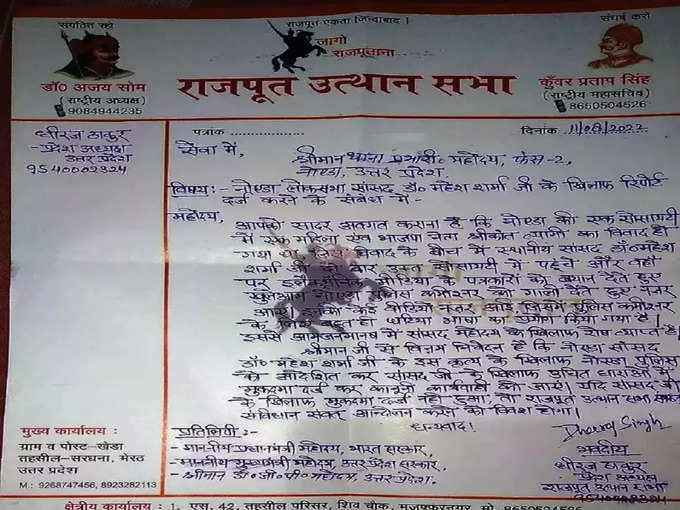 राजपूत एकता जिन्दाबाद।
संगठित रहो
संघर्ष करो
जागो
राजपूताना
राजपूत उत्थान सभा
डॉ० अजय सोम
(राष्ट्रीय अध्यक्ष)
9084944235
कुँवर प्रताप सिंह
(राष्ट्रीय महासचिव)
8650504526
धीरज ठाकुर
- प्रदेश अध्यक्ष
उत्तर प्रदेश
9540002324
पत्रांक ..................
दिनांक
सेवा में,
श्रीमान थाना प्रभारी महोदय, फेस-2,
नोएडा, उत्तर प्रदेश.
विषय:- नोएडा लोकसभा सांसद डॉ० महेश शर्मा जी के खिलाफ रिपोर्ट
दर्ज करने के संबंध में -
महोदय,
आपको सादर अवगत कराना है कि नोएडा की एक सोसायटी
में एक महिला एवं भाजपा नेता श्रीकांत त्यागी का विवाद हो
गया था, जिस विवाद के बीच में स्थानीय सांसद डॉ० महेश
शर्मा जी दो बार उक्त सोसायटी में पहुंचे और वहां
पर इलेक्ट्रॉनिक मीडिया के पत्रकारों को बयान देते हुए
खुलेआम नोएडा पुलिस कमिश्नर को गाली देते हुए नजर
आए। पुलिस कमिश्नर
के लिए बहुत ही घटिया भाषा का प्रयोग किया गया है।
इससे आमजनमानस में सांसद महोदय के खिलाफ रोष व्याप्त है।
श्रीमान जी से विनम्र निवेदन है कि नोएडा सांसद
डॉ० महेश शर्मा जी के इस कृत्य के खिलाफ नोएडा पुलिस
को आदेशित कर सांसद जी के खिलाफ उचित धाराओं में
मुकदमा दर्ज कर कानूनी कार्यवाही की जाए। यदि सांसद जी
के खिलाफ मुकदमा दर्ज नहीं हुआ, तो राजपूत उत्थान सभा
संविधान सवंत आन्दोलन करने को विवश होगा।
धन्यवाद!
Dheeraj Singh
भवदीय
धीरज ठाकुर
प्रदेश अध्यक्ष
राजपूत उत्थान सभा
9540002324
प्रतिलिपी:-
- माननीय प्रधानमंत्री महोदय, भारत सरकार,
- माननीय मुख्यमंत्री महोदय, उत्तर प्रदेश सरकार,
- श्रीमान डी०जी०पी० महोदय, उत्तर प्रदेश.
मुख्य कार्यालय :
ग्राम व पोस्ट-खेडा
तहसील-सरधना, मेरठ
उत्तर प्रदेश
M.: 9268747456, 8923282113
क्षेत्रीय कार्यालय : 1, एस, 42, तहसील परिसर, शिव चौक, मुजफ्फरनगर, मो. 8650504526